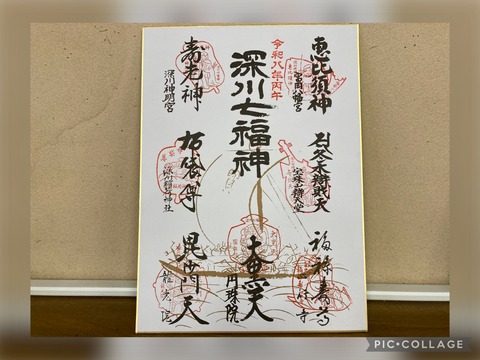 恵比須神
富岡八幡宮
冬木弁財天
福禄寿尊
心行寺
令和八年丙午
深川七福神
大黒天
円珠院
寿老神
深川神明宮
布袋尊
深川稲荷神社
毘沙門天
龍光院
PIC•COLLAGE